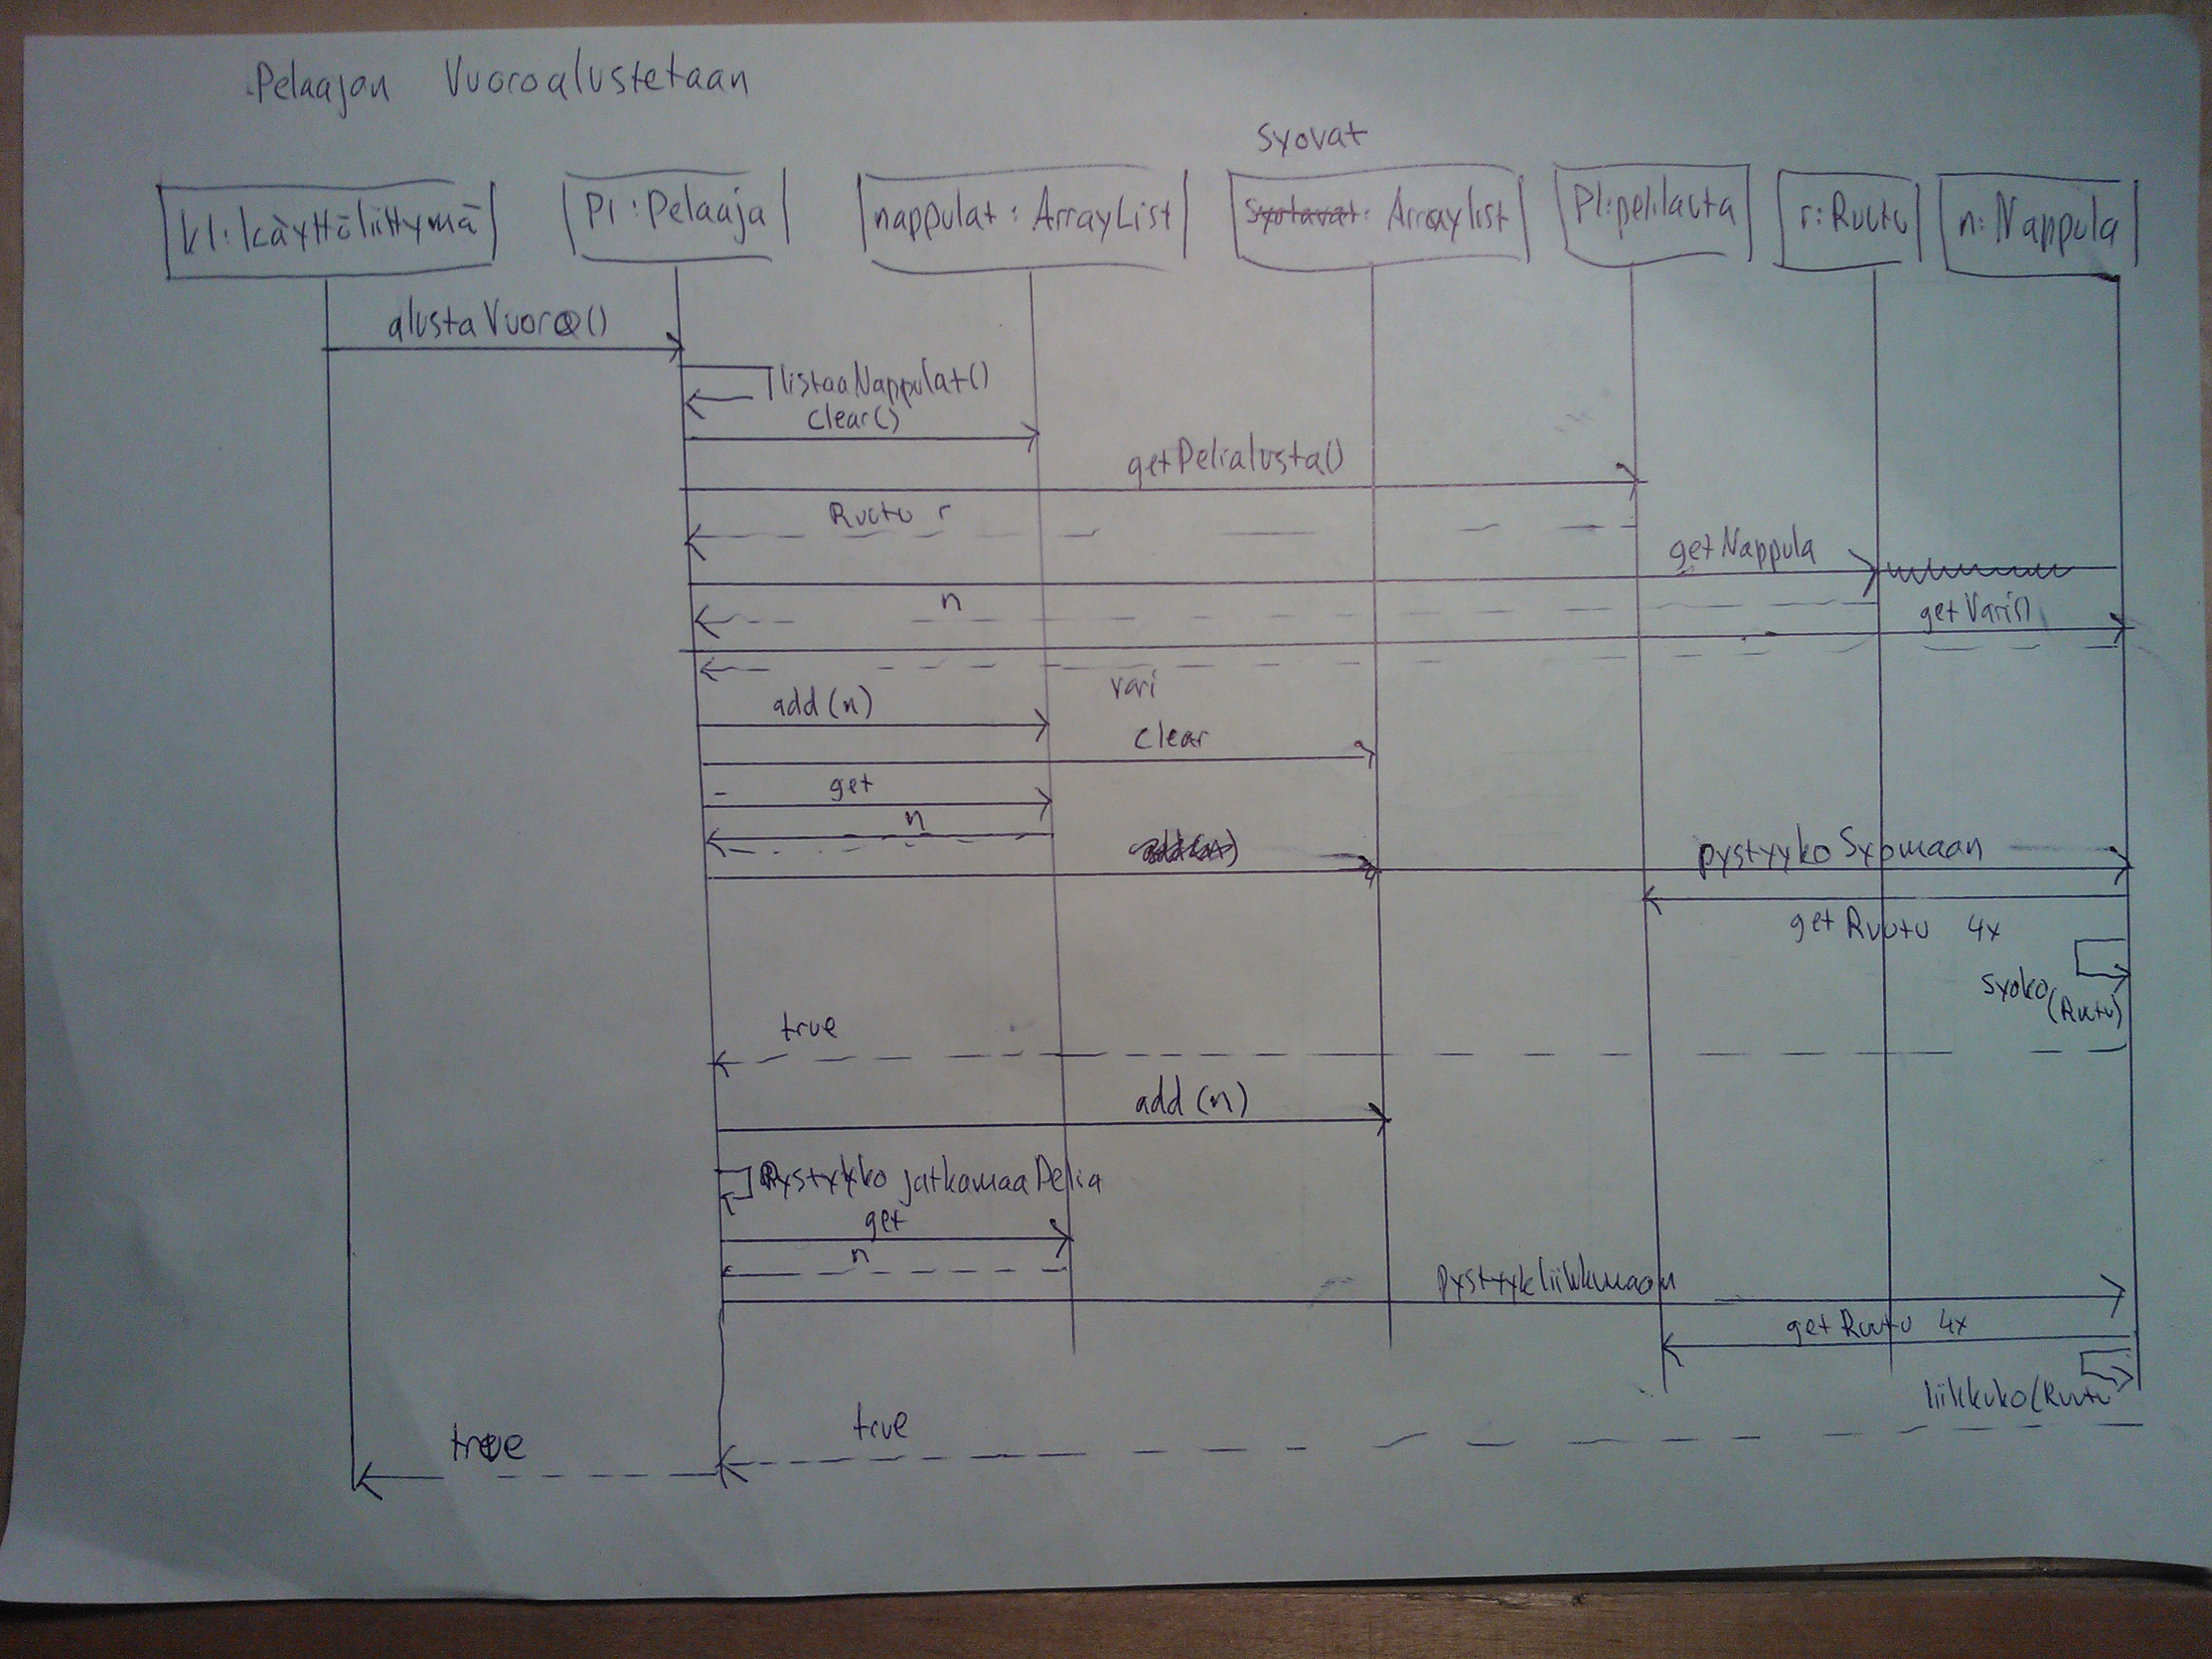 Pelaajan Vuoroalustetaan
syovat
kl:käyttöliittymä
P1:Pelaaja
nappulat: ArrayList
syotavat: Arraylist
Pl:pelilauta
r:Ruutu
n:Nappula
alustaVuoro()
listaaNappulat()
clear()
getPelialusta()
Ruutu r
getNappula
n
getVari()
vari
add(n)
clear
get
n
pystyykoSyomaan
getRuutu 4x
syoko
(Ruutu)
true
add(n)
PystykkojatkamaaPelia
get
n
pystyykliikkumaan
getRuutu 4x
liikkuko(Ruutu
true
true